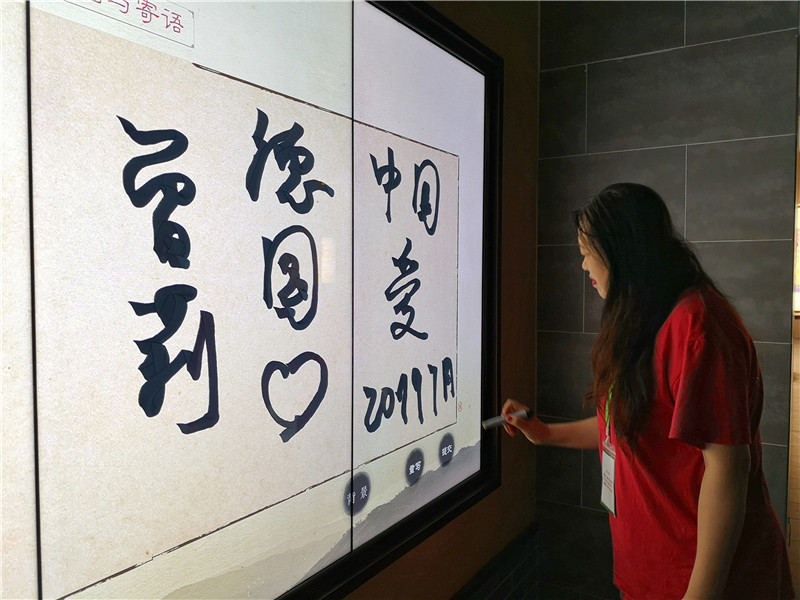 与寄语
中国
爱
2019 7月
德国♡
曾莉
背景
重写
提交